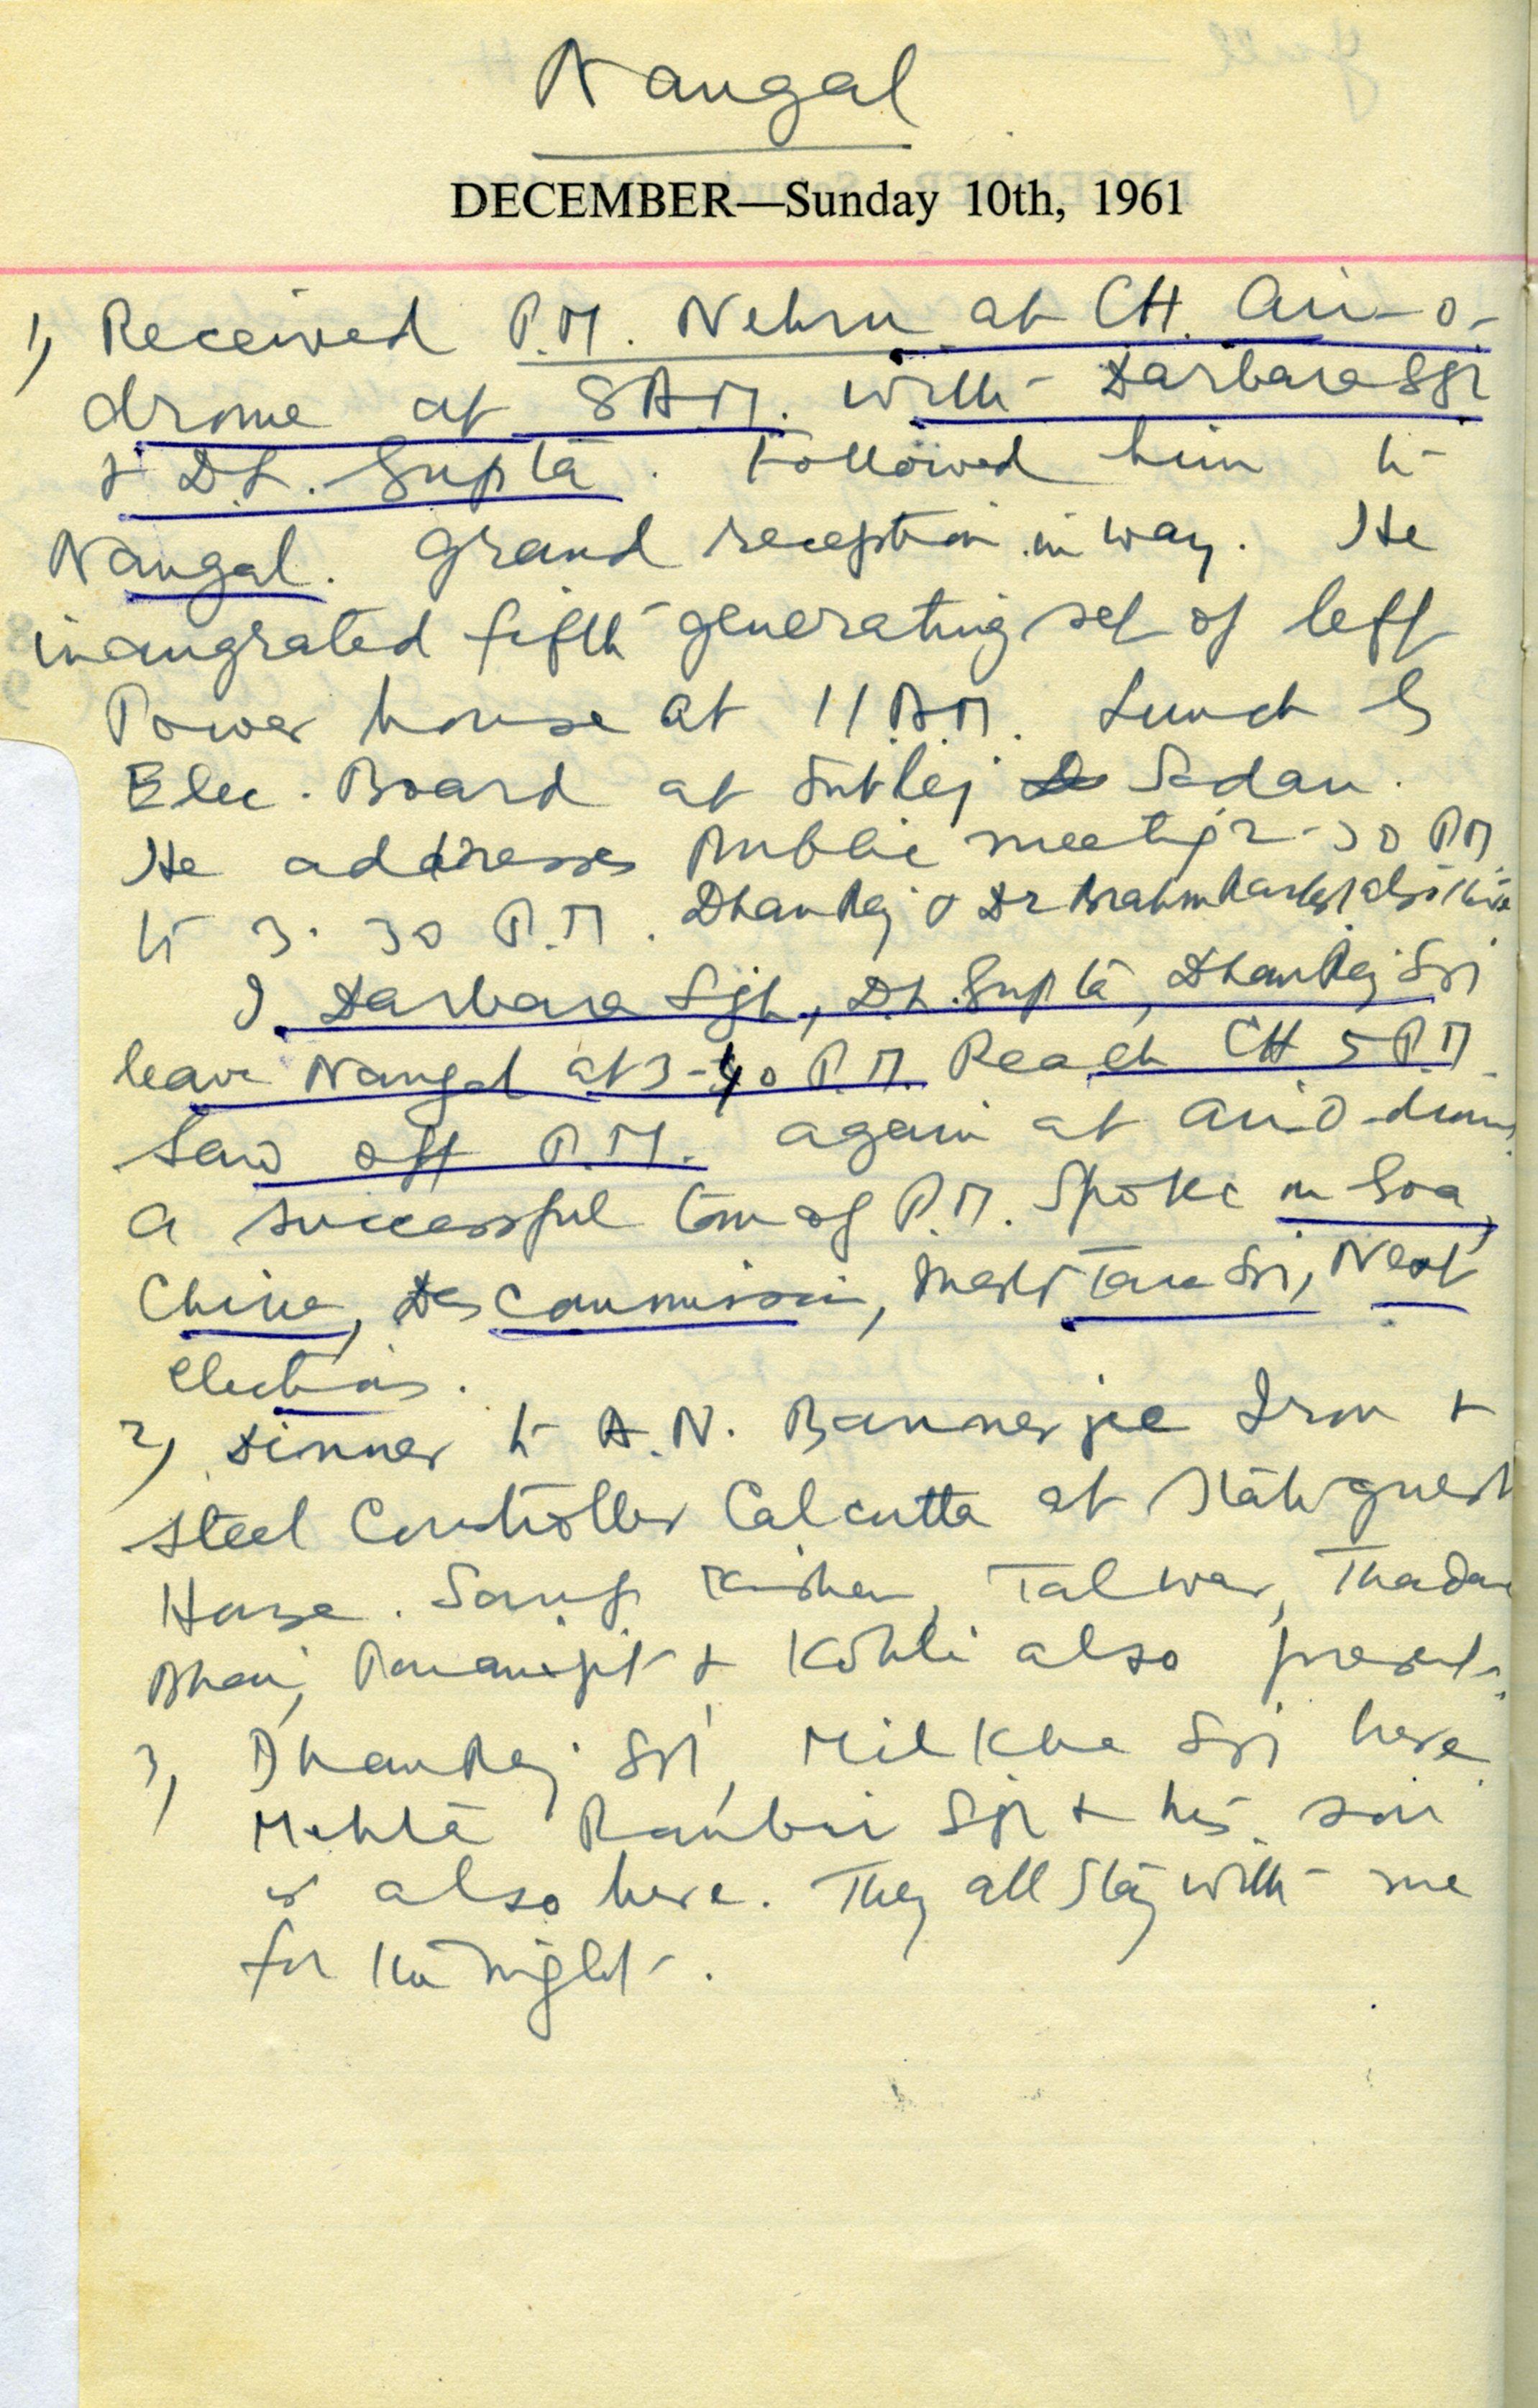 Nangal
DECEMBER—Sunday 10th, 1961
1) Received P.M. Nehru at CH. Air-o-
drome at 8 A.M. with Darbara Sgh
& D.L. Gupta. Followed him to
Nangal. Grand reception in way. He
inaugrated fifth generating set of left
Power house at 11 A.M. Lunch by
Elec. Board at Sutlej Sadan.
He addresses Public meetig 2-30 P.M.
to 3.30 P.M. Dhanraj & Dr also
I Darbara Sgh, D.L. Gupta, Dhanraj Sri
leave Nangal at 3-40 P.M. Reach CH 5 P.M
Saw off P.M. again at Air-O-drome
A successful tour of P.M. Spoke on Goa,
China, Das Commission, Master Tara Sri, Next
elections.
2) Dinner to A.N. Bannerjee Iron &
Steel Controller Calcutta at State guest
House. Sarup Kishen, Talwar, Thadani
Bhan, & Kohli also present.
3) Dhanraj Sri, Milkha Sri here
Mehta Ranbir Sgh & his son
is also here. They all stay with me
for the night.